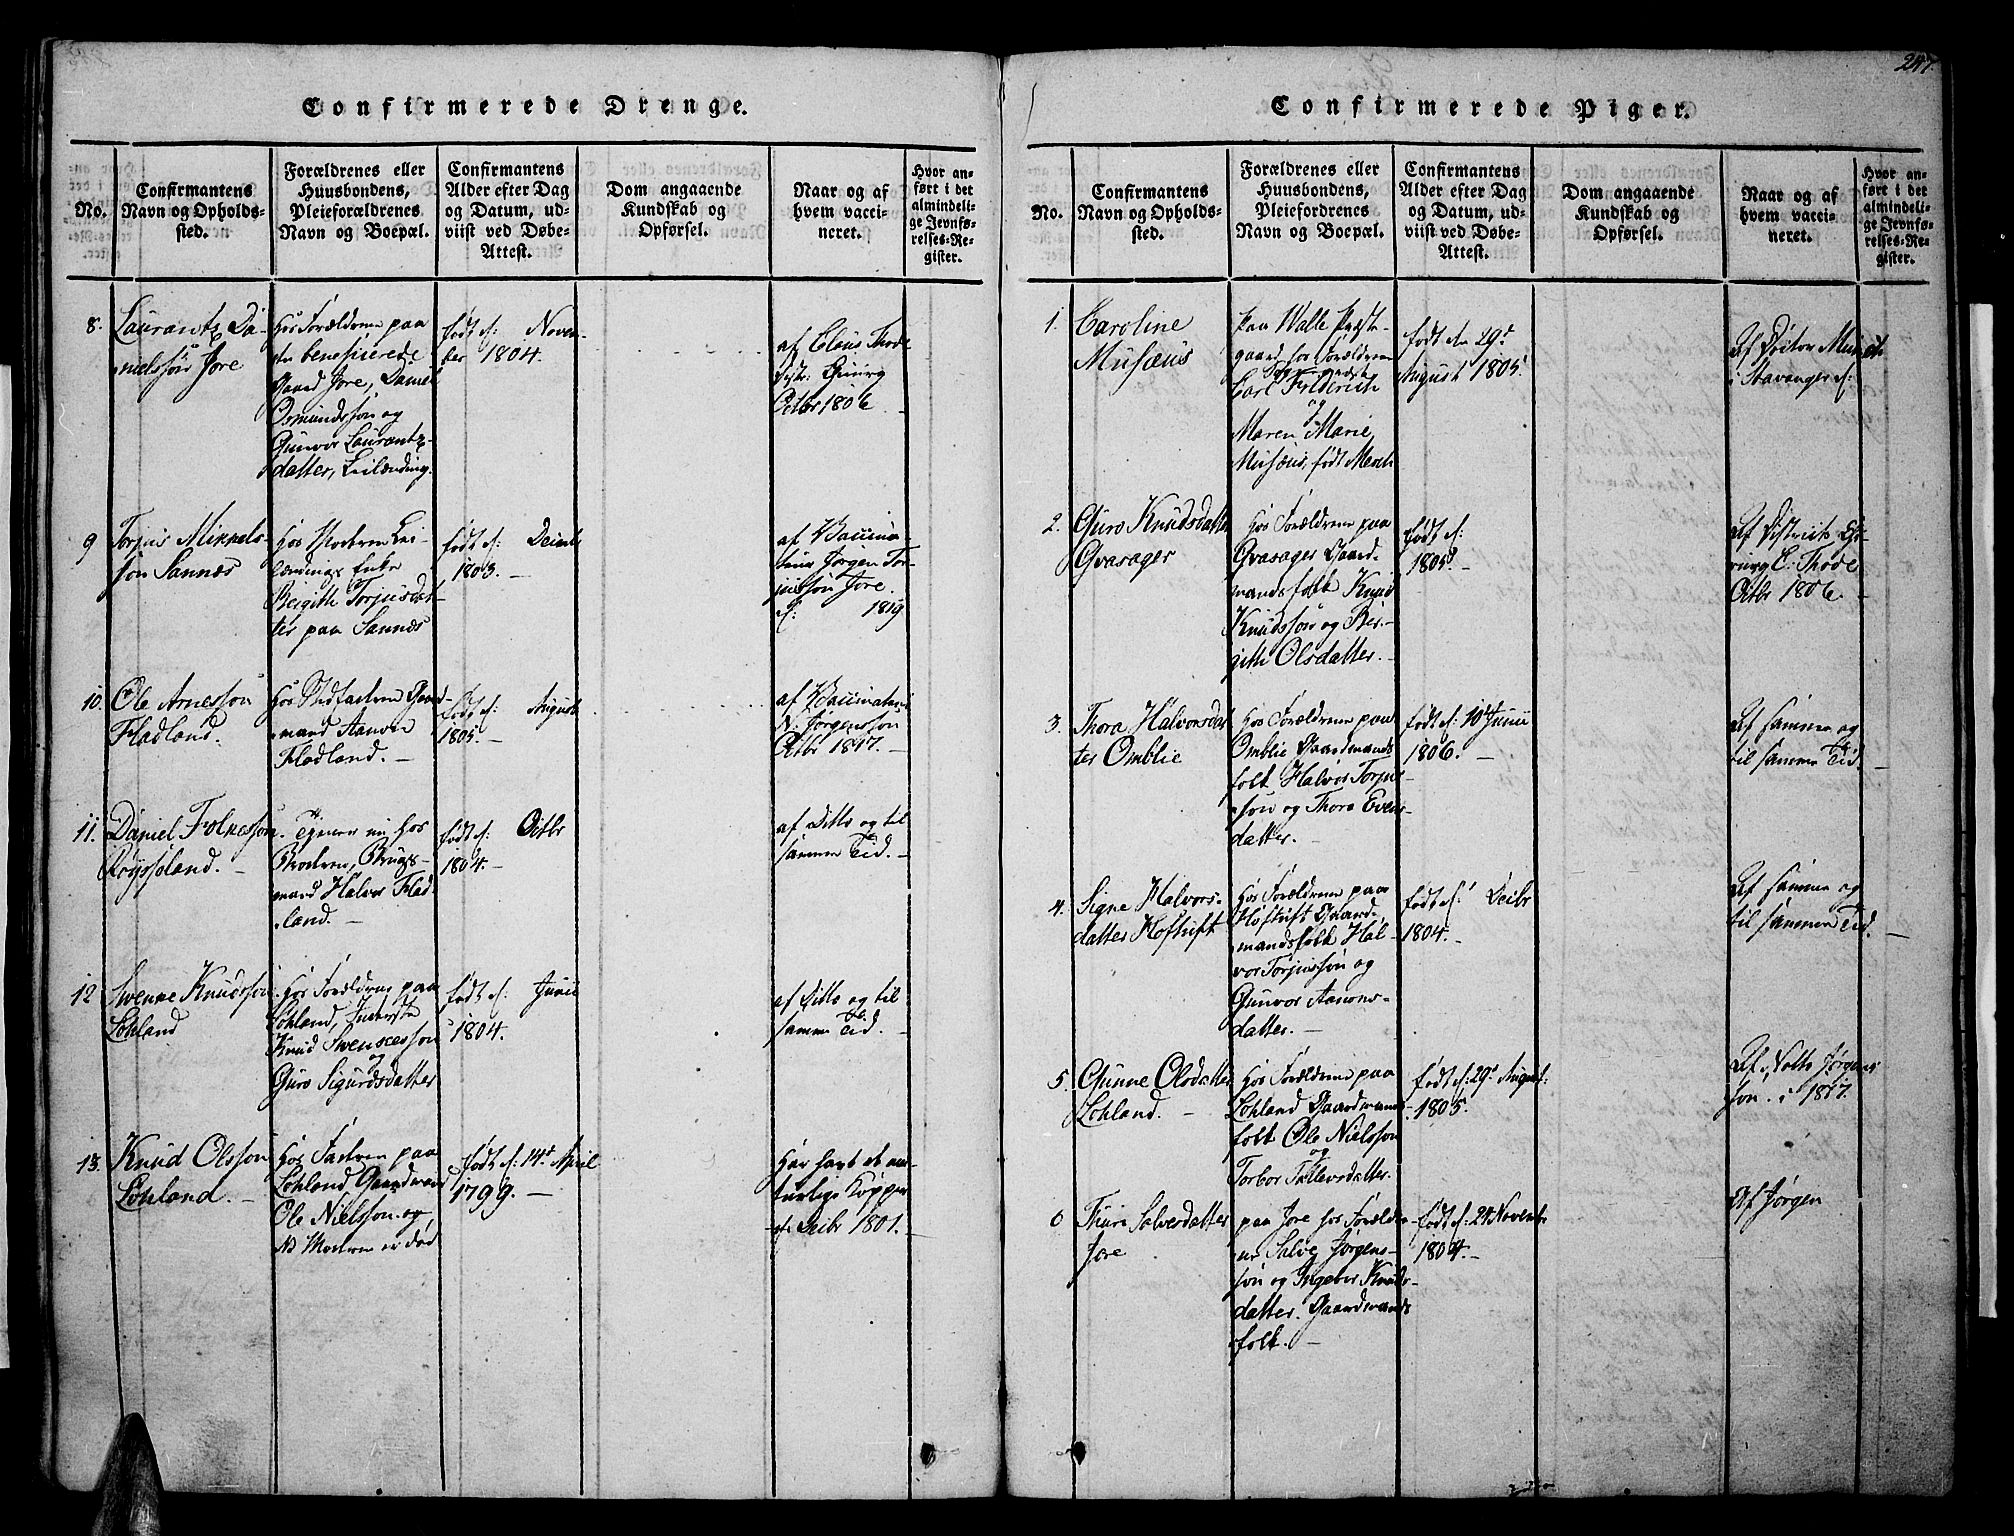 247.
Confirmerede Drenge.
No.
Confirmantens
Navn og Opholds-
sted.
Forældrenes eller
Huusbondens,
Pleieforældrenes
Navn og Boepæl.
Confirmantens
Alder efter Dag
og Datum, ud-
viist ved Døbe-
Attest.
Dom angaaende
Kundskab og
Opførsel.
Naar og af
hvem vacci-
neret.
Hvor an-
ført i det
almindeli-
ge Jevnfø-
relses-Re-
gister.
8.
Laurantz Da-
nielssøn Jore
hos Forældrene paa
det beneficerede
Gaard Jore, Daniel
Osmundssøn og
Gunvor Laurantz-
datter, Leilænding.
født d: Novem-
ber 1804.
af Claus Thode
Distr: Chirurg
Octbr 1806
9
Torjus Mikkels-
søn Sannæs
hos Moderen Lei-
lændings Enke
Birgithe Torjusdat-
ter paa Sannæs
født d: Decimb
1803.
af Vaccina-
teur Jørgen Tor-
jussøn Jore
d: 1819
10.
Ole Arnessøn
Fladland.
hos Stedfaderen Gaard-
mand Aanon
Fladland.
født d: August
1805.
af Vaccinateur
N. Jørgensson
Octbr 1817.
11.
Daniel Folkessøn
Røyseland.
Tjener nu hos
Broderen, Brugs-
mand Halvor Flad-
land.
født d: Octbr
1804.
af Ditto og til
samme Tid.
12
Swenne Knudssøn
Lohland
hos Forældrene paa
Lohland, Inderste
Knud Swennessøn
og
Guro Sigurdsdatter
født d: Junii
1804.
af Ditto og til
samme Tid.
13.
Knud Olssøn
Lohland.
hos Faderen paa
Lohland Gaardmand
Ole Nielssøn og
NB Moderen er død
født d: 14d April
1799.
Har havt de na-
turlige Kopper
d. Decbr 1801.
Confirmerede Piger.
No.
Confirmantens
Navn og Opholds-
sted.
Forældrenes eller
Huusbondens,
Pleiefordrenes
Navn og Boepæl.
Confirmantens
Alder efter Dag
og Datum, ud-
viist ved Døbe-
Attest.
Dom angaaende
Kundskab og
Opførsel.
Naar og af
hvem vacci-
neret.
Hvor an-
ført i det
almindeli-
ge Jevnfø-
relses-Re-
gister.
1.
Caroline
Musæus
paa Walle Præste-
gaard hos Forældrene
Sogne præst
Carl Friderich
og
Maren Marie
Musæus, født Monch
født den 29d
August 1805.
Af Doctor Munch
i Stavanger d:
2.
Guro Knudsdatter
Qvasager
hos Forældrene paa
Qvasager Gaard-
mandsfolk Knud
Knudssøn og Bir-
githe Olsdatter.
født d:
1805.
Af Districts Chi-
rurg C: Thode
Octbr 1806.
3.
Thora Halvorsdat-
ter Omblie
hos Forældrene paa
Omblie Gaardmands
folk Halvor Torjus-
søn og Thora Evens-
datter.
født d: 10d Junii
1806.
Af samme og
til samme Tid.
4.
Signe Halvors-
datter Hoftuft
hos Forældrene paa
Hoftuft Gaard-
mandsfolk Hal-
vor Torjussøn og
Gunvor Aanons-
datter.
født d: Decbr
1804.
Af samme og
til samme Tid.
5.
Gunne Olsdatter
Lohland.
hos Forældrene paa
Lohland Gaardmands-
folk Ole Nielssøn
og
Torbor Tallevsdatter.
født d: 29d August:
1805.
Af Jørgens
søn. i 1817.
6
Thuri Salvesdatter
Jore
paa Jore hos Foræld-
ne Salve Jørgens-
søn og Ingebor Knuds-
datter. Gaardmands
folk.
født d: 24 Novembr
1804.
Af Jørgen